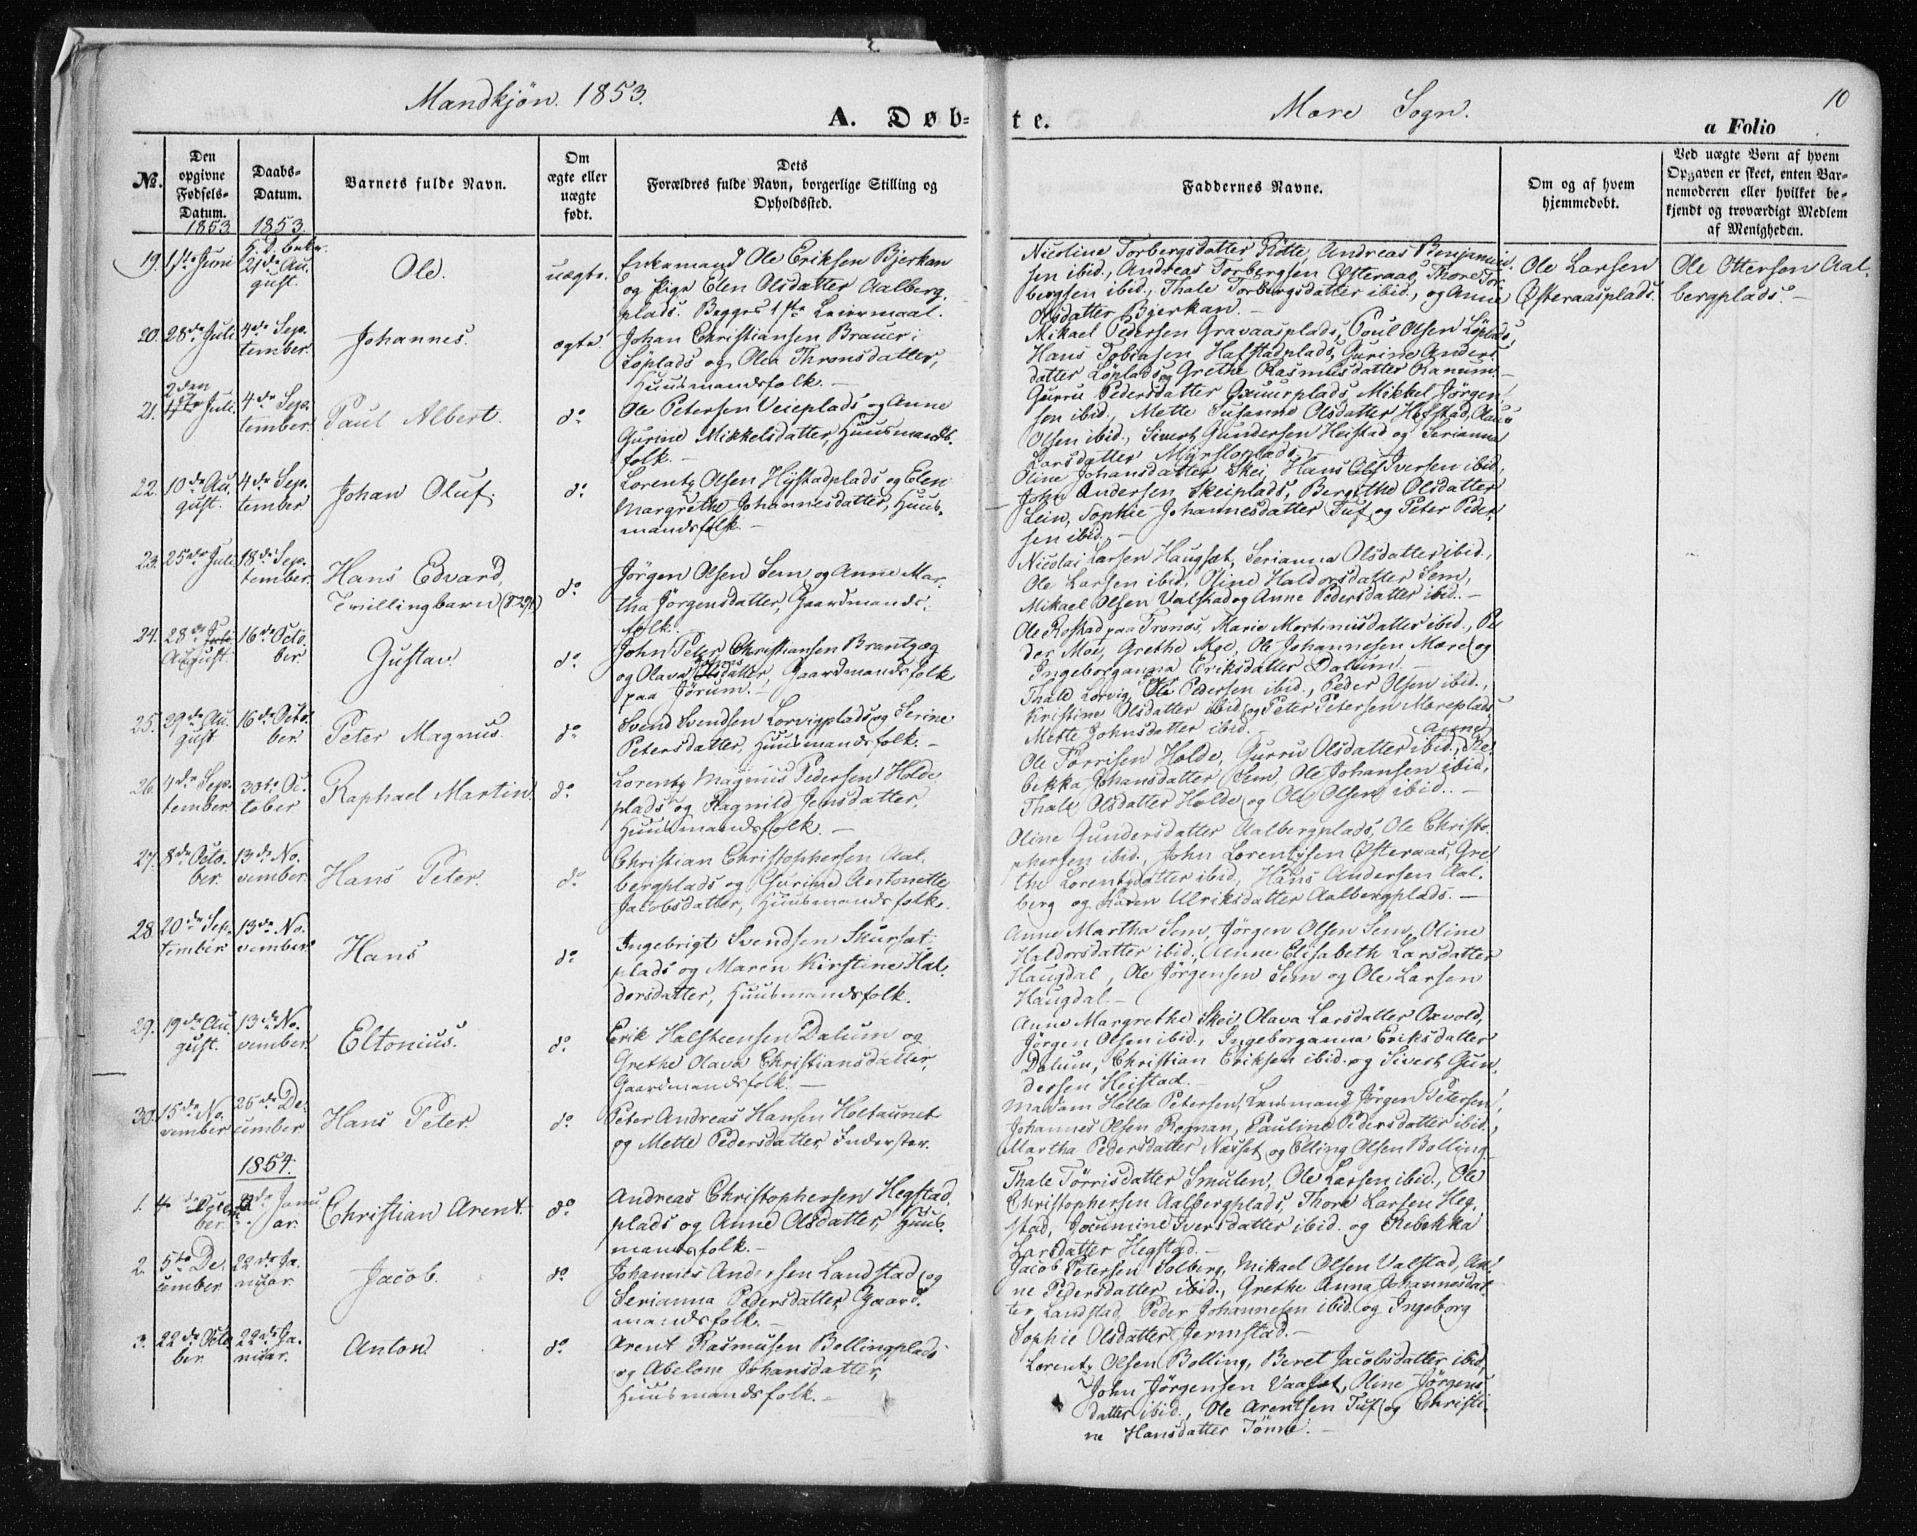 Mandkjøn. 1853.
A. Døb-
te.
Mære Sogn.
10
a Folio
No.
Den opgivne Fødsels-Datum.
Daabs-Datum.
Barnets fulde Navn.
Om ægte eller uægte født.
Dets Forældres fulde Navn, borgerlige Stilling og Opholdssted.
Faddernes Navne.
Om og af hvem hjemmedøbt.
Ved uægte Børn af hvem Opgaven er skeet, enten Barnemoderen eller hvilket bekjendt og troværdigt Medlem af Menigheden.
1853
1853.
19. 1ste Juni
21de August.
Ole.
uægte.
Enkemand Ole Eriksen Bjerkan
og Pige Elen Olsdatter Aalberg-
plads. Begges 1ste Leiermaal.
Nicoline Torbergsdatter Rötte, Andreas Benjamin-
sen ibid., Andreas Torbergsen Østeraas, Thore Tor-
bergsen ibid., Thale Torbergsdatter ibid., og Anne
Olsdatter Bjerkan.
Ole Larsen
Østeraasplads.
Ole Ottersen Aal-
bergplads.
20. 28de Juli
4de September.
Johannes.
ægte.
Johan Christiansen Brauer i
Löplads og Olea Thronsdatter,
Huusmandsfolk.
Mikael Pedersen Gravaasplads, Poul Olsen Löplads,
Hans Tobiasen Hafstadplads, Gurine Anders-
datter Löplads og Grethe Rasmusdatter Ranum.
21. 2den Juli
4de September
Paul Albert.
do
Ole Petersen Veieplads og Anne
Gurine Mikkelsdatter, Huusmands-
folk.
Gurru Pedersdatter Gruurplads, Mikkel Jörgen-
sen ibid., Mette Susanne Olsdatter Hofstad, Olaus
Olsen ibid., Sivert Gundersen Heistad og Serianna
Larsdatter
22. 10de August.
4de September
Johan Oluf.
do
Lorentz Olsen Hÿstadplads og Elen
Margrethe Johannesdatter, Huus-
mandsfolk.
Oline Johansdatter Skei, Hans Iversen ibid.,
John Andersen Skeiplads, Bergithe Olsdatter
Lein, Sophie Johannesdatter Tuf og Peter Peder-
sen ibid.
23. 25de Juli
18de September.
Hans Edvard,
Tvillingbarn
do
Jörgen Olsen Sem og Anne Mar-
tha Jörgensdatter, Gaardmands-
folk.
Nicolai Larsen Haugset, Serianna Olsdatter ibid.,
Ole Larsen ibid., Oline Haldorsdatter Sem,
Mikael Olsen Valstad og Anne Pedersdatter ibid.
24. 28de August.
16de October.
Gustav.
do
John Peter Christiansen Brantzæg
og Olava datter, Gaardmandsfolk
paa Jörum.
Ole Rostad paa Trones, Marie Mortimisdatter ibid., Pe-
der Moe, Grethe Moe, Ole Johannesen Mære og
Ingeborganna Eriksdatter Dalum.
25. 29de August.
16de October.
Peter Magnus.
do
Svend Svendsen Lorvigplads og Serine
Petersdatter, Huusmandsfolk.
Thale Lorvig, Ole Pedersen ibid., Peder Olsen ibid.,
Kristine Olsdatter ibid. og Peter Petersen Mæreplads,
Mette Johnsdatter ibid.
26. 4de September.
30te October
Raphael Martin.
do
Lorentz Magnus Pedersen Holde-
plads og Ragnild Jensdatter,
Huusmandsfolk.
Ole Törrisen Holde, Gurru Olsdatter ibid., Re-
bekka Johansdatter Sem, Ole Johansen ibid.,
Thale Olsdatter Holde og Ole Olsen ibid.
27. 8de October.
13de November.
Hans Peter.
do
Christian Christophersen Aal-
bergplads og Gurine Antonette
Jacobsdatter, Huusmandsfolk.
Oline Gundersdatter Aalbergplads, Ole Christo-
phersen ibid., John Lorentzsen Østeraas, Gre-
the Lorentzdatter ibid., Hans Andersen Aal-
berg og Karen Ulriksdatter Aalbergplads.
28. 20de September
13de November.
Hans
do
Ingebrigt Svendsen Skurset-
plads og Maren Kirstine Hal-
dorsdatter, Huusmandsfolk.
Anne Martha Sem, Jörgen Olsen Sem, Oline
Haldorsdatter ibid., Anne Elisabeth Larsdatter
Haugdal, Ole Jörgensen Sem og Ole Larsen
Haugdal.
29. 19de August.
13de November.
Eltonius.
do
Erik Halsteensen Dalum og
Grethe Olava Christiansdatter,
Gaardmandsfolk.
Anne Margrethe Skei, Olava Larsdatter Oxvold,
Jörgen Olsen ibid., Ingeborganna Eriksdatter
Dalum, Christian Eriksen ibid. og Sivert Gun-
dersen Heistad.
30. 15de November
26de December
Hans Peter.
do
Peter Andreas Hansen Holtaunet
og Mette Pedersdatter, Inderster.
Madam Hella Petersen, Lensmand Jörgen Petersen,
Johannes Olsen Rognan, Pauline Pedersdatter ibid.,
Martha Pedersdatter Næsset og Elling Olsen Bolling.
1854.
1.
Januar.
Christian Arent.
do
Andreas Christophersen Hegstad-
plads og Anne Olsdatter, Huus-
mandsfolk.
Thale Törrisdatter Smulen, Ole Larsen ibid., Ole
Christophersen Aalbergplads, Thore Larsen Heg-
stad, Jocumine Iversdatter ibid. og Rebekka
Larsdatter Hegstad.
2. 5te December
22de Januar.
Jacob.
do
Johannes Andersen Landstad og
Serianna Pedersdatter, Gaard-
mandsfolk.
Jacob Petersen Solberg, Mikael Olsen Valstad, An-
ne Pedersdatter ibid., Grethe Anna Johannesdat-
ter Landstad, Peder Johannesen ibid. og Ingeborg
Sophie Olsdatter Jermstad.
3. 22de October.
22de Januar.
Anton.
do
Arent Rasmusen Bollingplads
og Abelone Johansdatter,
Huusmandsfolk.
Lorentz Olsen Bolling, Beret Jacobsdatter ibid.,
John Jörgensen Vaaset, Oline Jörgens-
datter ibid., Ole Arentsen Tuf og Christi-
ne Hansdatter Tönne.